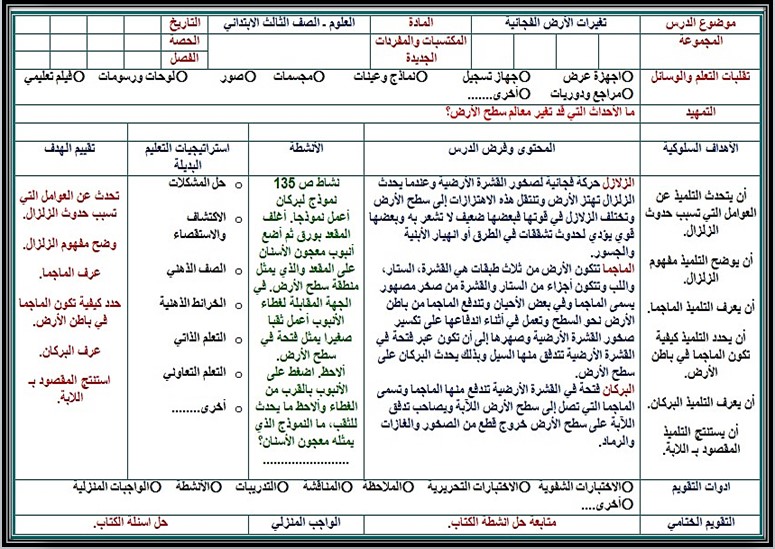 موضوع الدرس
تغيرات الأرض الفجائية
المادة
العلوم - الصف الثالث الابتدائي
التاريخ
المجموعة
المكتسبات والمفردات الجديدة
الحصة
الفصل
تقلبات التعلم والوسائل
Oاجهزة عرض Oجهاز تسجيل Oنماذج وعينات Oمجسمات Oصور Oلوحات ورسومات Oفيلم تعليمي
Oمراجع ودوريات Oأخرى.......
التمهيد
ما الأحداث التي قد تغير معالم سطح الأرض؟
الأهداف السلوكية
المحتوى وفرض الدرس
الأنشطة
استراتيجيات التعليم البديلة
تقييم الهدف
أن يتحدث التلميذ عن
العوامل التي تسبب حدوث
الزلزال.
أن يوضح التلميذ مفهوم
الزلزال.
أن يعرف التلميذ الماجما.
أن يحدد التلميذ كيفية
تكون الماجما في باطن
الأرض.
أن يعرف التلميذ البركان.
أن يستنتج التلميذ
المقصود بـ اللابة.
الزلازل حركة فجائية لصخور القشرة الأرضية وعندما يحدث
الزلزال تهتز الأرض وتنتقل هذه الاهتزازات إلى سطح الأرض
وتختلف الزلازل في قوتها فبعضها ضعيف لا تشعر به وبعضها
قوي يؤدي لحدوث تشققات في الطرق أو انهيار الأبنية
والجسور.
الماجما تتكون الأرض من ثلاث طبقات هي القشرة، الستار،
واللب وتتكون أجزاء من الستار والقشرة من صخر مصهور
يسمى الماجما وفي بعض الأحيان وتندفع الماجما من باطن
الأرض نحو السطح وتعمل في أثناء اندفاعها على تكسير
صخور القشرة الأرضية وصهرها إلى أن تكون عبر فتحة في
القشرة الأرضية تتدفق منها السيل وبذلك يحدث البركان على
سطح الأرض.
البركان فتحة في القشرة الأرضية تندفع منها الماجما وتسمى
الماجما التي تصل إلى سطح الأرض اللآبة ويصاحب تدفق
اللآبة على سطح الأرض خروج قطع من الصخور والغازات
والرماد.
نشاط ص 135
نموذج لبركان
أعمل نموذجا. أغلف
المقعد بورق ثم أضع
أنبوب معجون الأسنان
على المقعد والذي يمثل
منطقة سطح الأرض. في
الجهة المقابلة لغطاء
الأنبوب أعمل ثقبا
صغيرا يمثل فتحة في
سطح الأرض.
ألاحظ. اضغط على
الأنبوب بالقرب من
الغطاء وألاحظ ما يحدث
للثقب، ما النموذج الذي
يمثله معجون الأسنان؟
........................
o حل المشكلات
o الاكتشاف والاستقصاء
o الصف الذهني
o الخرائط الذهنية
o التعلم الذاتي
o التعلم التعاوني
o أخرى........
تحدث عن العوامل التي
تسبب حدوث الزلزال.
وضح مفهوم الزلزال.
عرف الماجما.
حدد كيفية تكون الماجما
في باطن الأرض.
عرف البركان.
استنتج المقصود بـ
اللابة.
ادوات التقويم
Oالاختبارات الشفوية Oالاختبارات التحريرية Oالملاحظة Oالمناقشة Oالتدريبات Oالأنشطة Oالواجبات المنزلية
Oأخرى....
التقويم الختامي
متابعة حل انشطة الكتاب.
الواجب المنزلي
حل اسئلة الكتاب.